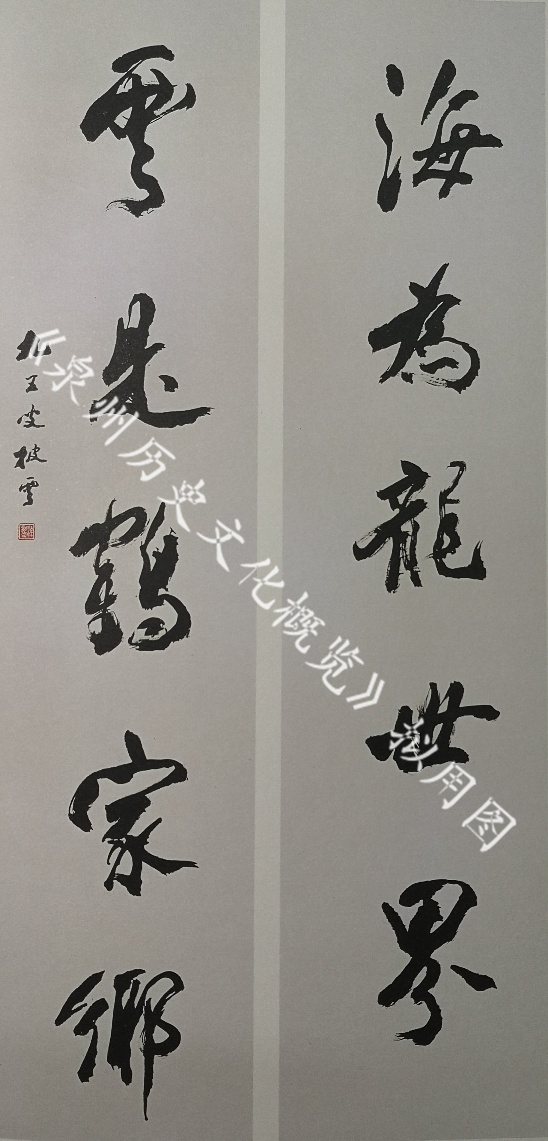 海為龍世界
雲是鶴家鄉
《泉州历史文化概览》
用图